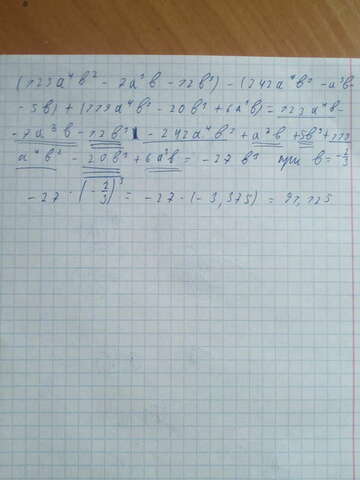 (123a⁴b² - 7a³b - 12b³) - (242a⁴b² - a³b -
- 5b³) + (119a⁴b² - 20b³ + 6a³b) = 123a⁴b² -
- 7a³b - 12b³ - 242a⁴b² + a³b + 5b³ + 119
a⁴b² - 20b³ + 6a³b = -27b³ при b = -1/3
-27 · (-1/3)³ = -27 · (-3,375) = 91,125